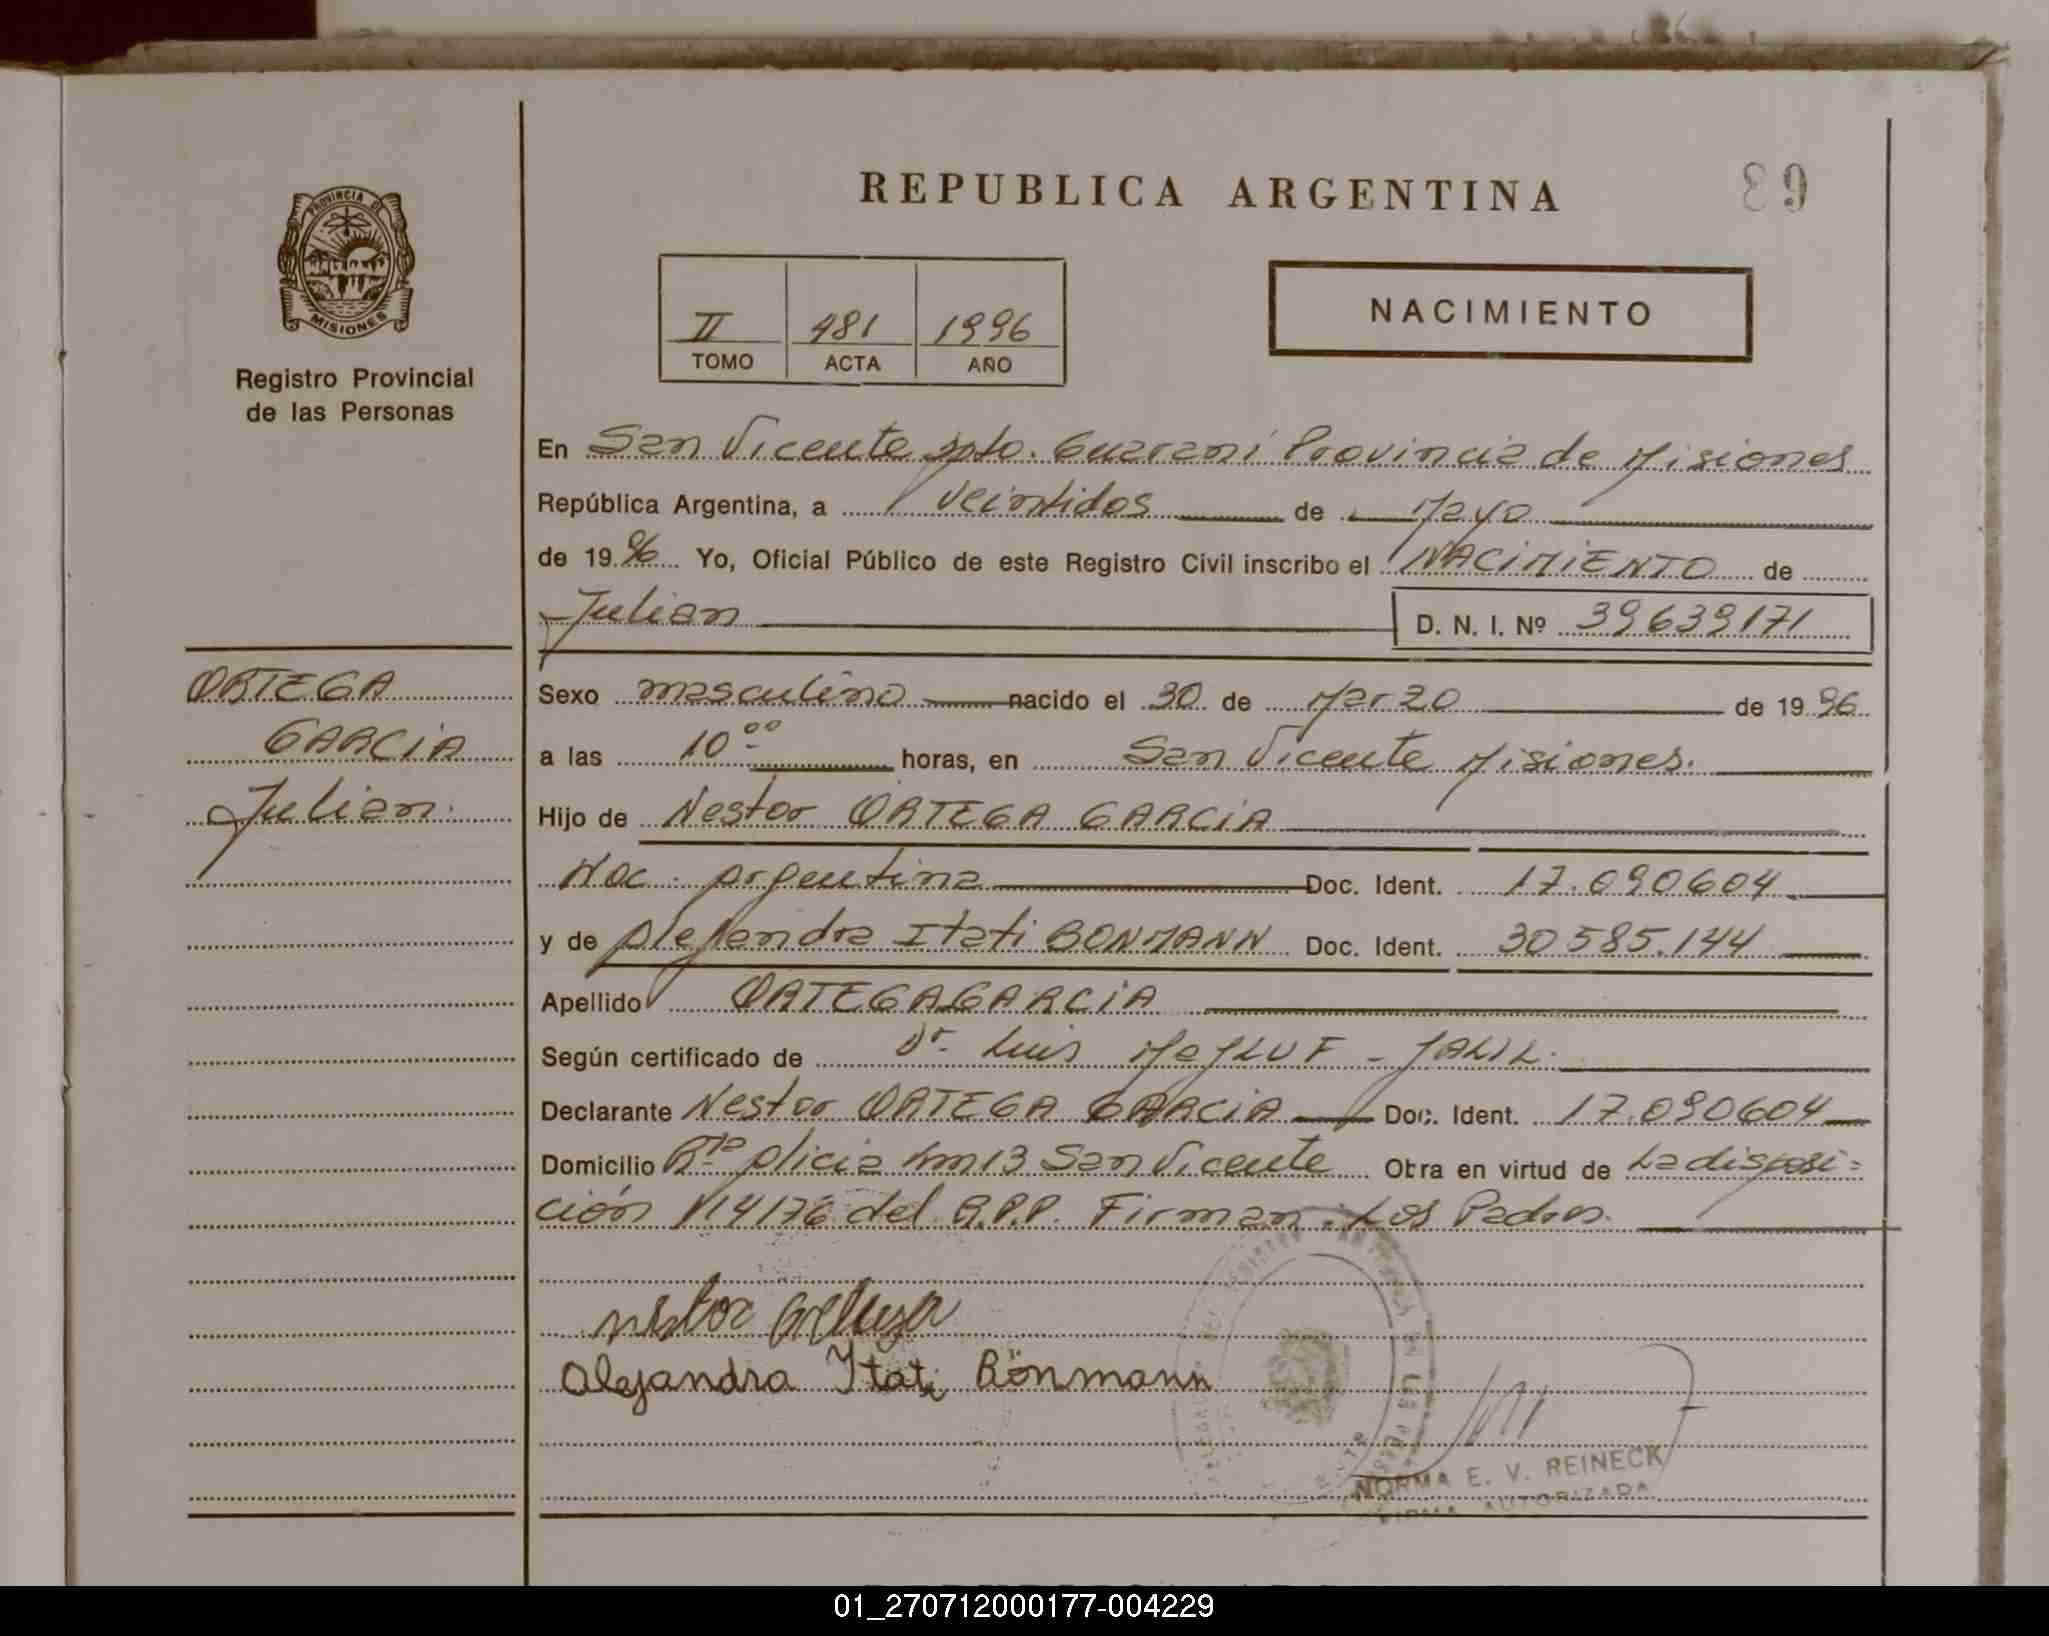 REPUBLICA ARGENTINA
89
PROVINCIA DE
MISIONES
Registro Provincial
de las Personas
II 481 1996
TOMO ACTA AÑO
NACIMIENTO
En San Vicente Dpto. Guaraní Provincia de Misiones
República Argentina, a Veintidos de Mayo
de 1996 Yo, Oficial Público de este Registro Civil inscribo el NACIMIENTO de
Julian D. N. I. Nº 39639171
ORTEGA
GARCIA
Julian.
Sexo masculino nacido el 30 de Marzo de 1996
a las 10 00 horas, en San Vicente Misiones.
Hijo de Nestor ORTEGA GARCIA
Nac. Argentina Doc. Ident. 17.090604
y de Alejandra Itati BONMANN Doc. Ident. 30585.144
Apellido ORTEGA GARCIA
Según certificado de Dr. Luis MAJLUF - JALIL.
Declarante Nestor ORTEGA GARCIA Doc. Ident. 17.090604
Domicilio Bº Alicia km 13 San Vicente Obra en virtud de La disposi=
ción Nº 4176 del R.P.P. Firman: Los Padres.
Nestor
Alejandra Itati Bönmann
NORMA E. V. REINECK
FIRMA AUTORIZADA
01_270712000177-004229